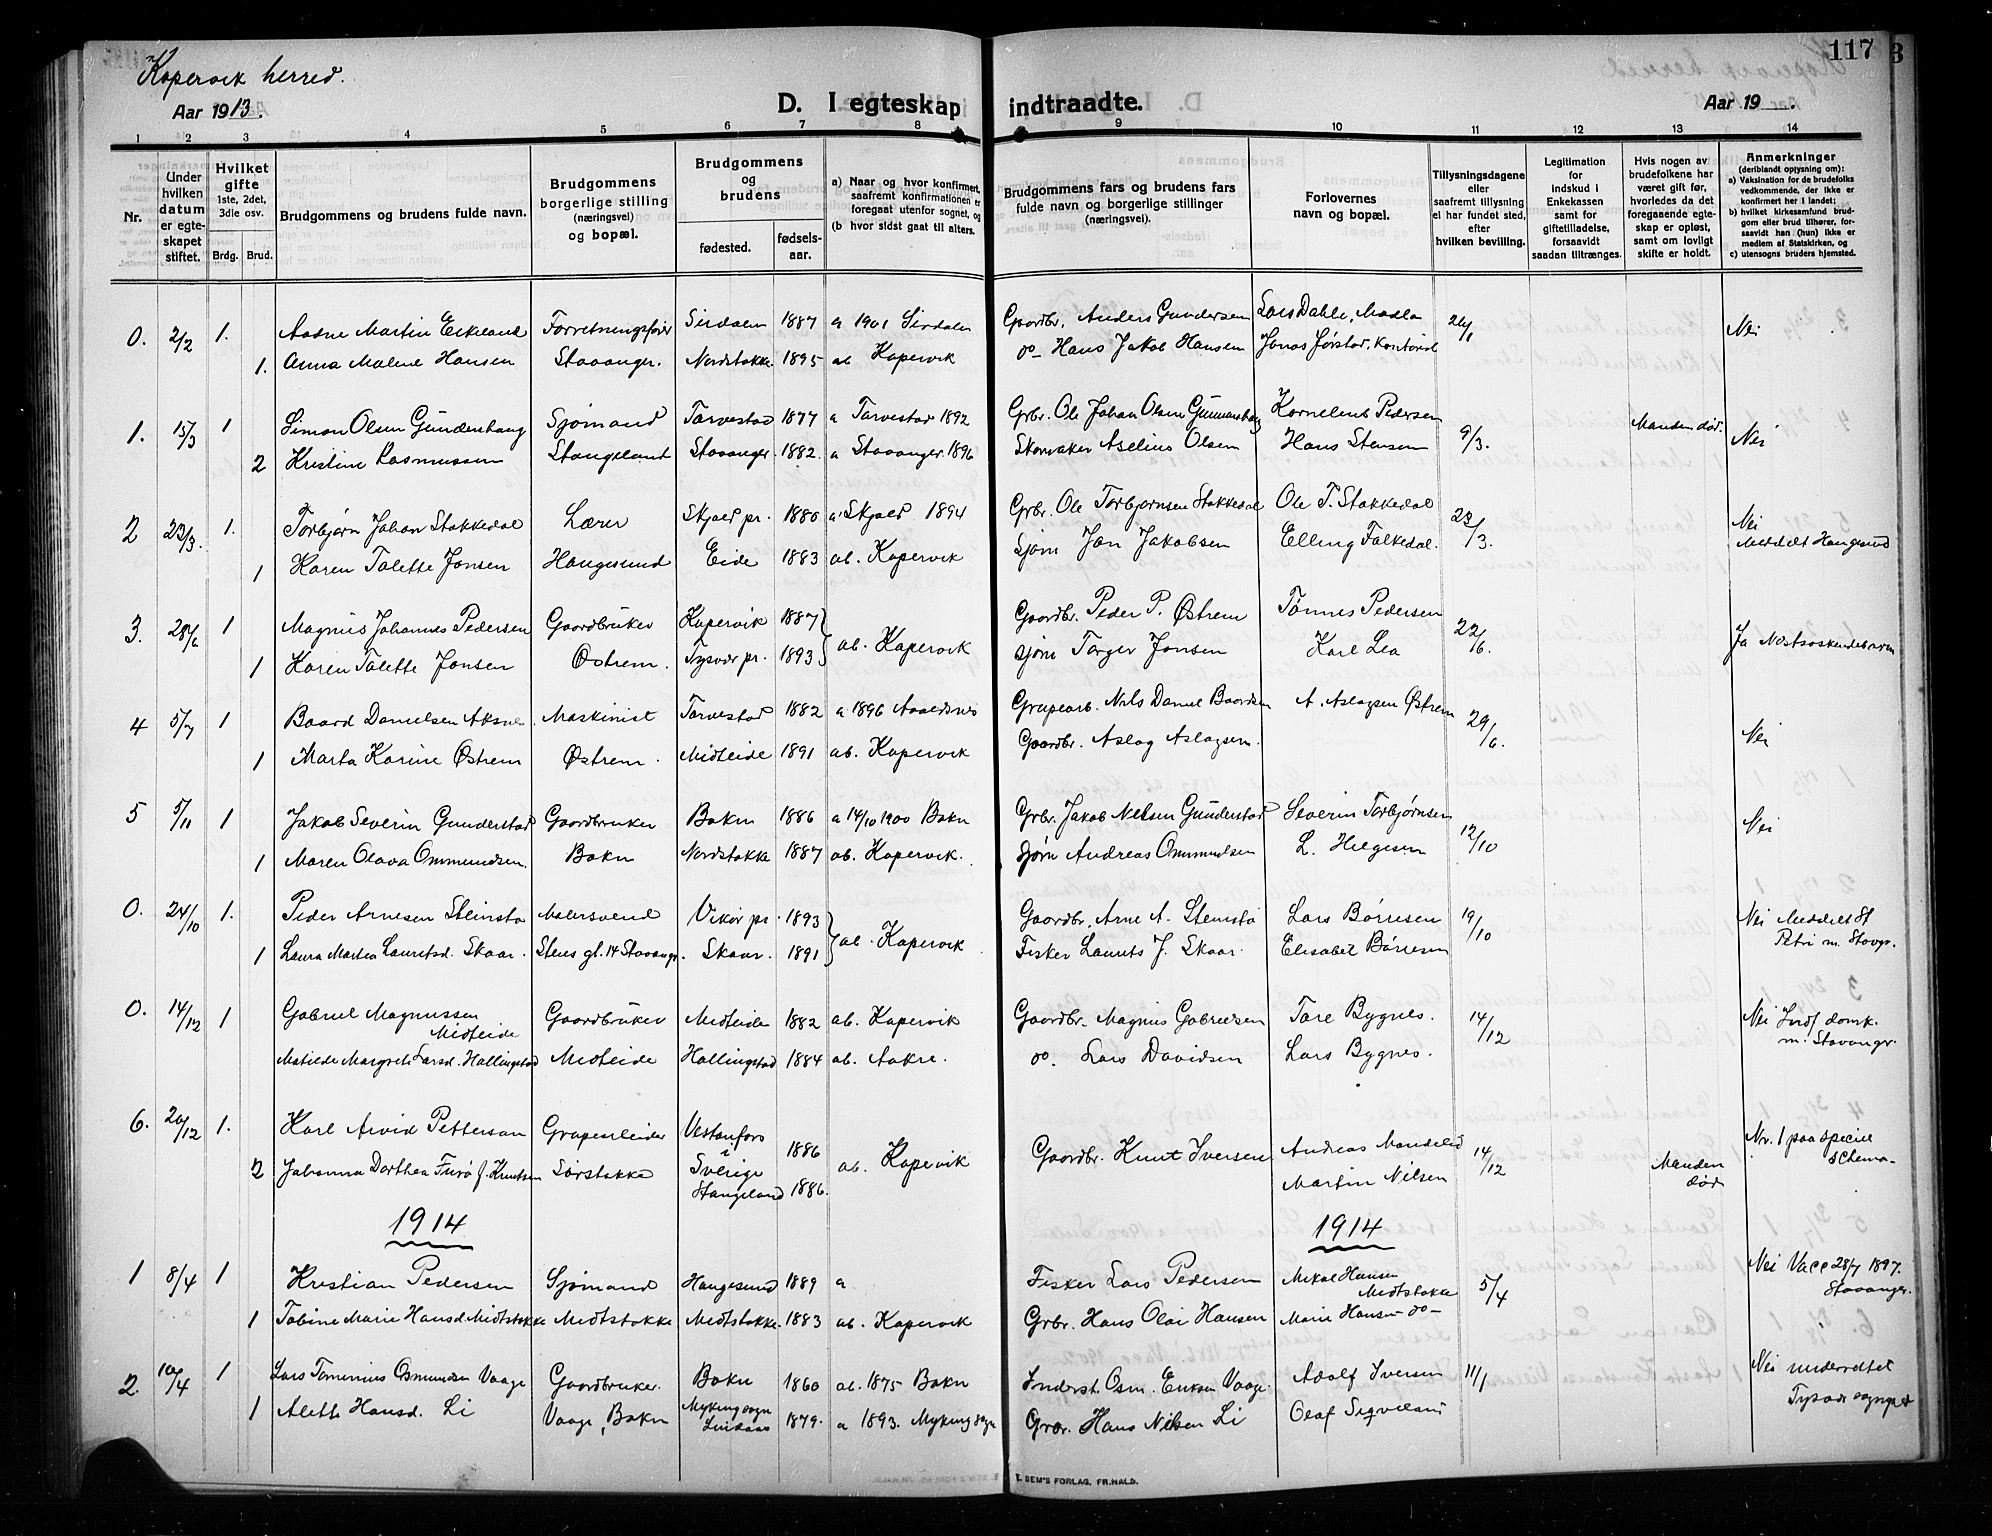 Kopervik herred.
117
3
Aar 1913.
D. I egteskap indtraadte.
Aar 19
1 2 3 4 5 6 7 8 9 10 11 12 13 14
Nr.
Under hvilken datum er egteskapet stiftet.
Hvilket gifte 1ste, 2det, 3die osv.
Brdg. Brud.
Brudgommens og brudens fulde navn.
Brudgommens borgerlige stilling (næringsvei) og bopæl.
Brudgommens og brudens
fødested.
fødselsaar.
a) Naar og hvor konfirmert, saafremt konfirmationen er foregaat utenfor sognet, og
(b hvor sidst gaat til alters.
Brudgommens fars og brudens fars fulde navn og borgerlige stillinger (næringsvei).
Forlovernes navn og bopæl.
Tillysningsdagene eller saafremt tillysning ei har fundet sted, efter hvilken bevilling.
Legitimation for indskud i Enkekassen samt for giftetilladelse, forsaavidt saadan tiltrænges.
Hvis nogen av brudefolkene har været gift før, hvorledes da det foregaaende egteskap er opløst, samt om lovligt skifte er holdt.
Anmerkninger (deriblandt oplysning om): a) Vaksination for de brudefolks vedkommende, der ikke er konfirmert her i landet; b) hvilket kirkesamfund brudgom eller brud tilhører, forsaavidt han (hun) ikke er medlem av Statskirken, og c) utensogns bruders hjemsted.
0. 2/2 1. Aadne Martin Eikeland Forretningsfører Sirdalen 1887 a 1901 Sirdalen Gaardbr. Anders Gundersen Lars Dahle, Madla 26/1 Nei
1. Anna Malene Hansen Stavanger. Nordstokke 1895 ab Kopervik do- Hans Jakob Hansen Jonas Jørstad, Kontorist
1. 15/3 1 Simon Olsen Gundershaug Sjømand Torvestad 1877 a Torvestad 1892 Grbr. Ole Johan Olsen Kornelius Pedersen 9/3. Manden død. Nei
2 Kristine Rasmussen Stangeland Stavanger 1882. a Stavanger 1896 Aselius Olsen Hans Stensen
2 23/3. 1. Torbjørn Johan Stakkedal Lærer Skjold pr. 1880 a Skjold 1894 Grbr. Ole Torbjørnsen Stakkedal Ole T. Stakkedal 23/3. Nei
Meddelt Haugesund
1 Karen Talette Jonsen Haugesund Eide 1883 ab. Kopervik sjøm Jon Jakobsen Elling Falkedal.
3. 28/6 1 Magnus Johannes Pedersen Gaardbruker Kopervik 1887 ab. Kopervik Gaardbr. Peder P. Østrem Tønnes Pedersen 22/6. Ja Næstsøskendebarn
1 Karen Talette Jonsen Østrem. Tysvær pr. 1893 sjøm Torger Jonsen Karl Lea
4 5/7 1 Baard Danielsen Aksnes Maskinist Torvestad 1882 a 1896 Avaldsnes Grupearb. Nils Daniel Baardsen A. Aslagsen Østrem 29/6. Nei
1 Marta Karine Østrem Østrem. Midteide 1891 ab. Kopervik Gaardbr. Aslag Aslagsen.
5 5/11 1 Jakob Severin Gunderstad Gaardbruker Bokn 1886 a 14/10 1900 Bokn Grbr. Jakob Nelsen Gunderstad Severin Torbjørnsen 12/10 Nei
1 Maren Olava Ommundsen. Bokn Nordstokke 1887 ab. Kopervik. sjøm Andreas Ommundsen L. Helgesen
0. 24/10 1. Peder Arnesen Steinstø Malersvend Vikør pr. 1893 ab. Kopervik Gaardbr. Arne A. Steinstø Lars Børresen 19/10 Nei Meddelt St
Petri m. Stavgr.
1 Laura Martea Lauritsd. Skaar. Stens gt. 14 Stavangr. Skaar. 1891 Fisker Laurits J. Skaar. Elisabet Børresen
0. 14/12 1 Gabriel Magnussen
Midteide Gaardbruker Midteide 1882 ab. Kopervik Gaardbr. Magnus Gabrielsen Tore Bygnes. 14/12 Nei Indf. domk.
m. Stavangr.
Matilde Margrete Larsd. Hallingstad Midteide Hallingstad 1884 ab. Aakre. do. Lars Davidsen Lars Bygnes.
6. 20/12 1. Karl Arvid Petterson Grupearbeider Vestanfors
i
Sverige 1886 ab. Kopervik Andreas Mandelid 14/12 Nr. 1 paa speciel
schema-
2 Johanna Dorthea Furø f. Knutsen Sørstokke Stangeland 1886. Gaardbr. Knut Iversen Martin Nilsen Manden
død
1914
1914
1 8/4 1 Kristian Pedersen Sjømand Haugesund 1889 a Fisker Lars Pedersen Mikal Hansen
Midtstokke 5/4 Nei Vacc 28/7 1897.
Stavanger.
1 Tobine Marie Hansd. Midtstokke Midtstokke Midtstokke. 1883 ab. Kopervik Grbr. Hans Olai Hansen Marie Hansen -do-
2. 10/4 1 Lars Tominius Osmundsen Vaage Gaardbruker. Bokn 1860 ab. 1875 Bokn Inderst. Osm. Eriksen Vaage. Adolf Iversen 11/1 Nei underrettet
Tysvær sogneprest
1 Alette Hansd. Li Vaage, Bokn Myking sogn
Lindaas 1879. a 1893. Myking sogn Grbr. Hans Nilsen Li Olaf Sigvelsen
E. SEM'S FORLAG, FR.HALD.